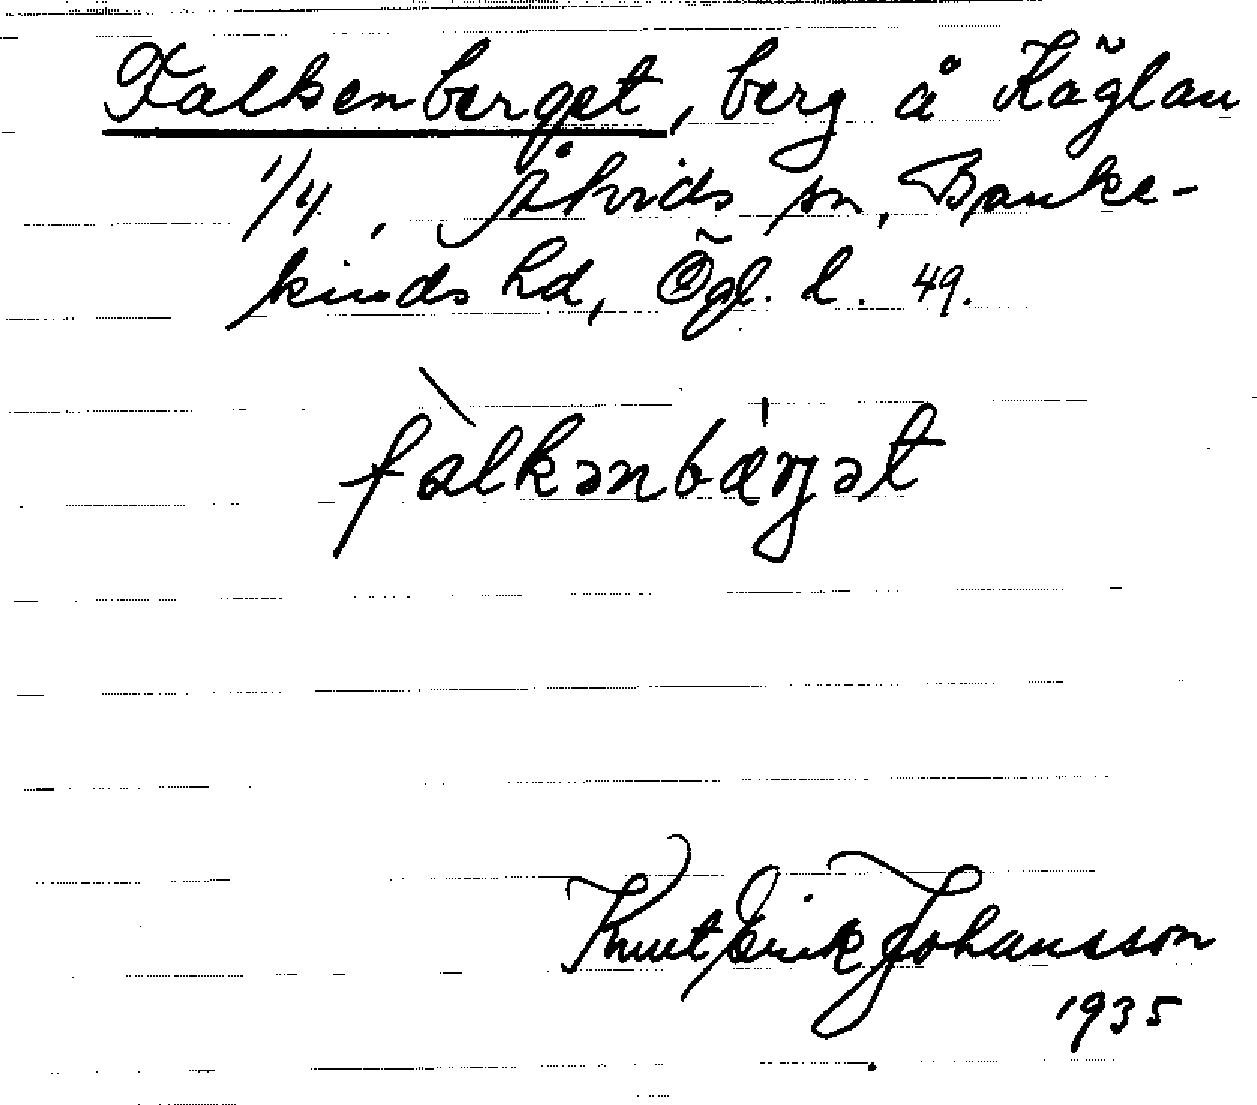 Falkenberget, berg å Käglan
1/4, Åtvids sn, Banke-
kinds hd, Ögl. l. 49.
fàlkənbæ̍rjət
Knut Erik Johansson
1935